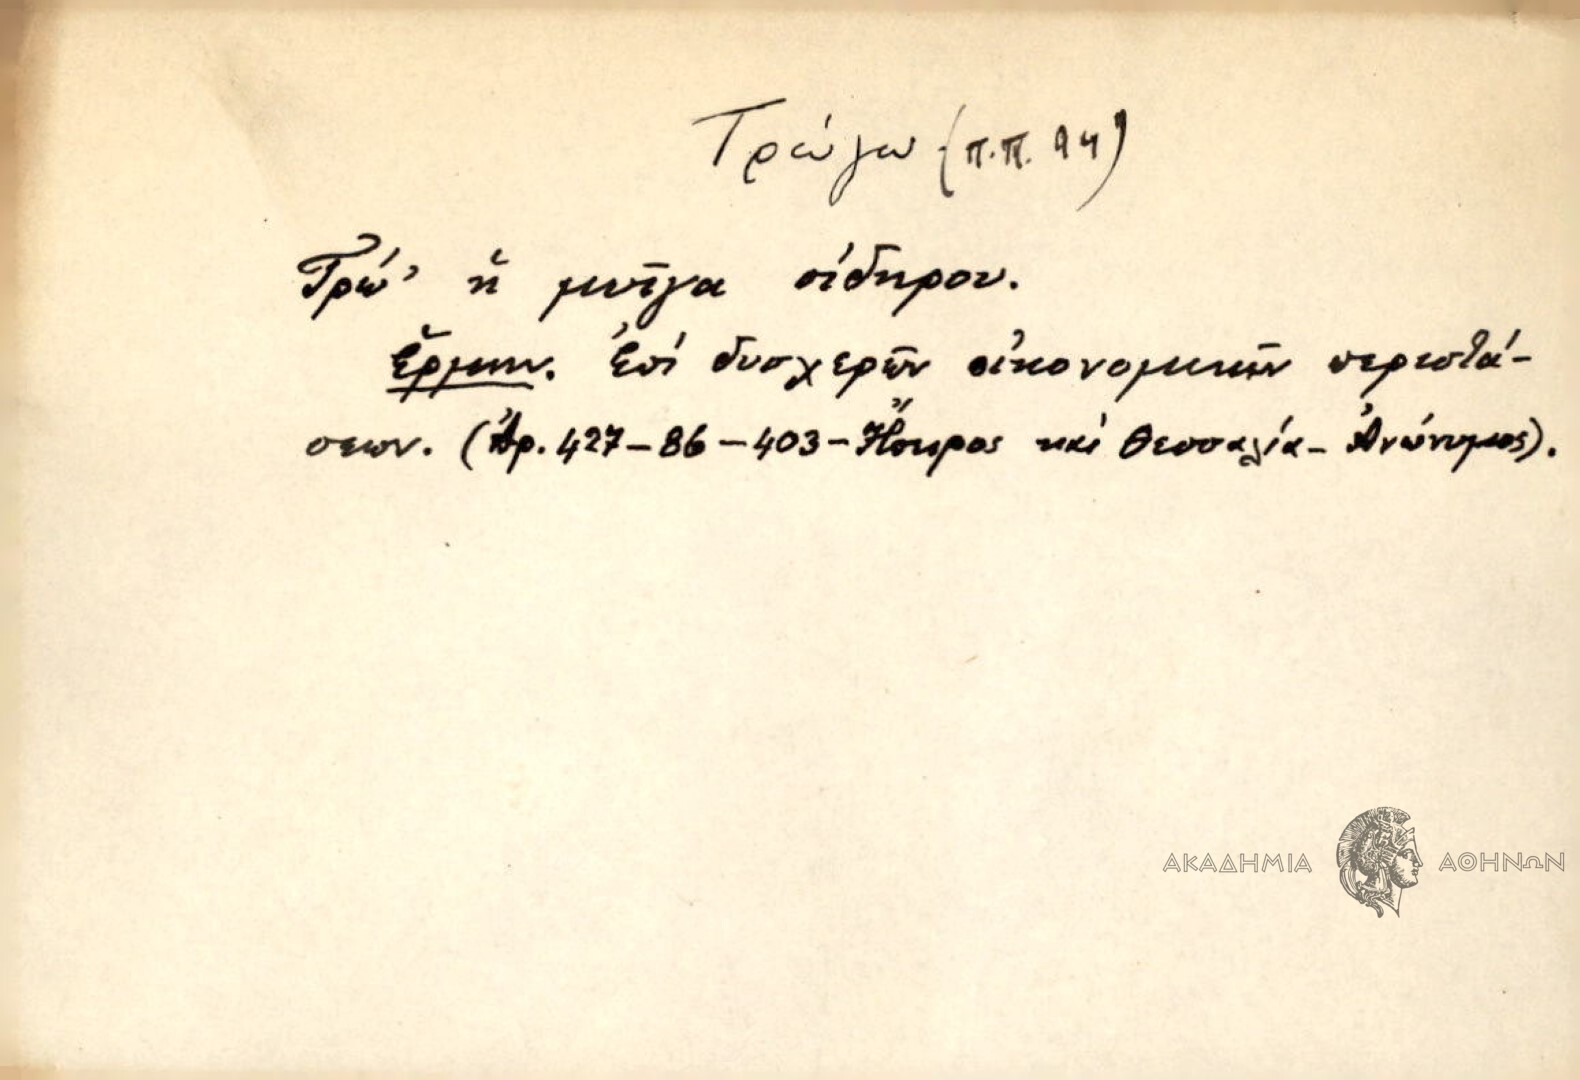 Τρώγω (π.π. 94)
Τρώ' ἡ μυῖγα σίδηρον.
Ἑρμην. Ἐπὶ δυσχερῶν οἰκονομικῶν περιστά-
σεων. (Ἀρ. 427-86-403-Ἤπειρος καὶ Θεσσαλία- Ἀνώνυμος).
ΑΚΑΔΗΜΙΑ ΑΘΗΝΩΝ